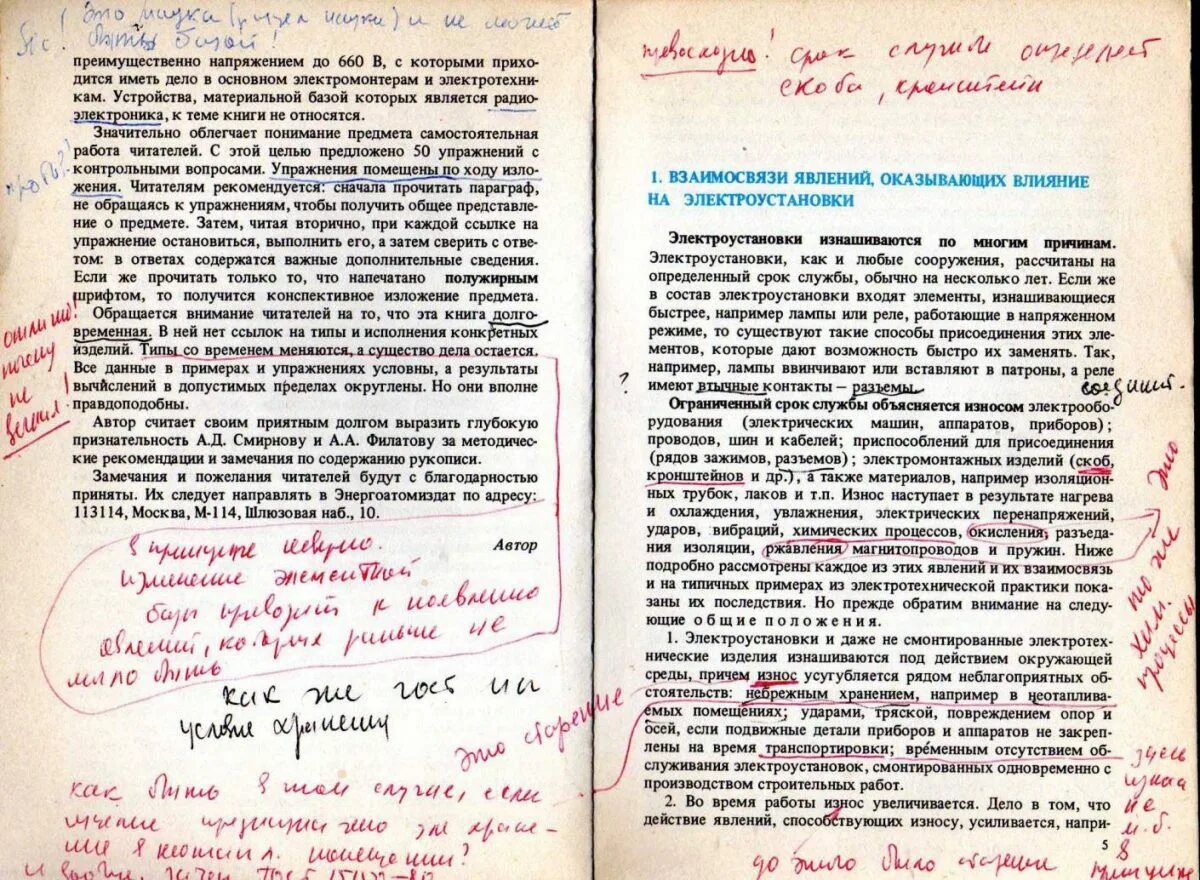 Это наука (раздел науки) и не может
Sic! быть базой!
преимущественно напряжением до 660 В, с которыми прихо-
дится иметь дело в основном электромонтерам и электротехни-
кам. Устройства, материальной базой которых является радио-
электроника, к теме книги не относятся.
Значительно облегчает понимание предмета самостоятельная
работа читателей. С этой целью предложено 50 упражнений с
контрольными вопросами. Упражнения помещены по ходу изло-
жения. Читателям рекомендуется: сначала прочитать параграф,
не обращаясь к упражнениям, чтобы получить общее представле-
ние о предмете. Затем, читая вторично, при каждой ссылке на
упражнение остановиться, выполнить его, а затем сверить с отве-
том: в ответах содержатся важные дополнительные сведения.
Если же прочитать только то, что напечатано полужирным
шрифтом, то получится конспективное изложение предмета.
Обращается внимание читателей на то, что эта книга долго-
временная. В ней нет ссылок на типы и исполнения конкретных
изделий. Типы со временем меняются, а существо дела остается.
Все данные в примерах и упражнениях условны, а результаты
вычислений в допустимых пределах округлены. Но они вполне
правдоподобны.
Автор считает своим приятным долгом выразить глубокую
признательность А.Д. Смирнову и А.А. Филатову за методичес-
кие рекомендации и замечания по содержанию рукописи.
Замечания и пожелания читателей будут с благодарностью
приняты. Их следует направлять в Энергоатомиздат по адресу:
113114, Москва, М-114, Шлюзовая наб., 10.
Автор
отлично!
почему
не
!
В принципе неверно.
Изменение элементной
базы приводит к появлению
явлений, которых раньше не
могло быть
как же гост на
условие хранения
это старение
как быть в том случае, если
хране-
ние в неотапл. помещении?
ГОСТ
превосходно! срок службы определяет
скоба, кронштейн
1. ВЗАИМОСВЯЗИ ЯВЛЕНИЙ, ОКАЗЫВАЮЩИХ ВЛИЯНИЕ
НА ЭЛЕКТРОУСТАНОВКИ
Электроустановки изнашиваются по многим причинам.
Электроустановки, как и любые сооружения, рассчитаны на
определенный срок службы, обычно на несколько лет. Если же
в состав электроустановки входят элементы, изнашивающиеся
быстрее, например лампы или реле, работающие в напряженном
режиме, то существуют такие способы присоединения этих эле-
ментов, которые дают возможность быстро их заменять. Так,
например, лампы ввинчивают или вставляют в патроны, а реле
? имеют втычные контакты — разъемы. соединит.
Ограниченный срок службы объясняется износом электрообо-
рудования (электрических машин, аппаратов, приборов);
проводов, шин и кабелей; приспособлений для присоединения
(рядов зажимов, разъемов); электромонтажных изделий (скоб,
кронштейнов и др.), а также материалов, например изоляцион-
ных трубок, лаков и т.п. Износ наступает в результате нагрева
и охлаждения, увлажнения, электрических перенапряжений,
ударов, вибраций, химических процессов, окисления, разъеда-
ния изоляции, ржавления магнитопроводов и пружин. Ниже
подробно рассмотрены каждое из этих явлений и их взаимосвязь
и на типичных примерах из электротехнической практики пока-
заны их последствия. Но прежде обратим внимание на следу-
ющие общие положения.
1. Электроустановки и даже не смонтированные электротех-
нические изделия изнашиваются под действием окружающей
среды, причем износ усугубляется рядом неблагоприятных об-
стоятельств: небрежным хранением, например в неотаплива-
емых помещениях; ударами, тряской, повреждением опор и
осей, если подвижные детали приборов и аппаратов не закреп-
лены на время транспортировки; временным отсутствием об-
служивания электроустановок, смонтированных одновременно с
производством строительных работ.
2. Во время работы износ увеличивается. Дело в том, что
действие явлений, способствующих износу, усиливается, напри-
5
Это
то же
хим.
процессы
здесь
износа
не
м.б.
в
принципе
до этого было старение